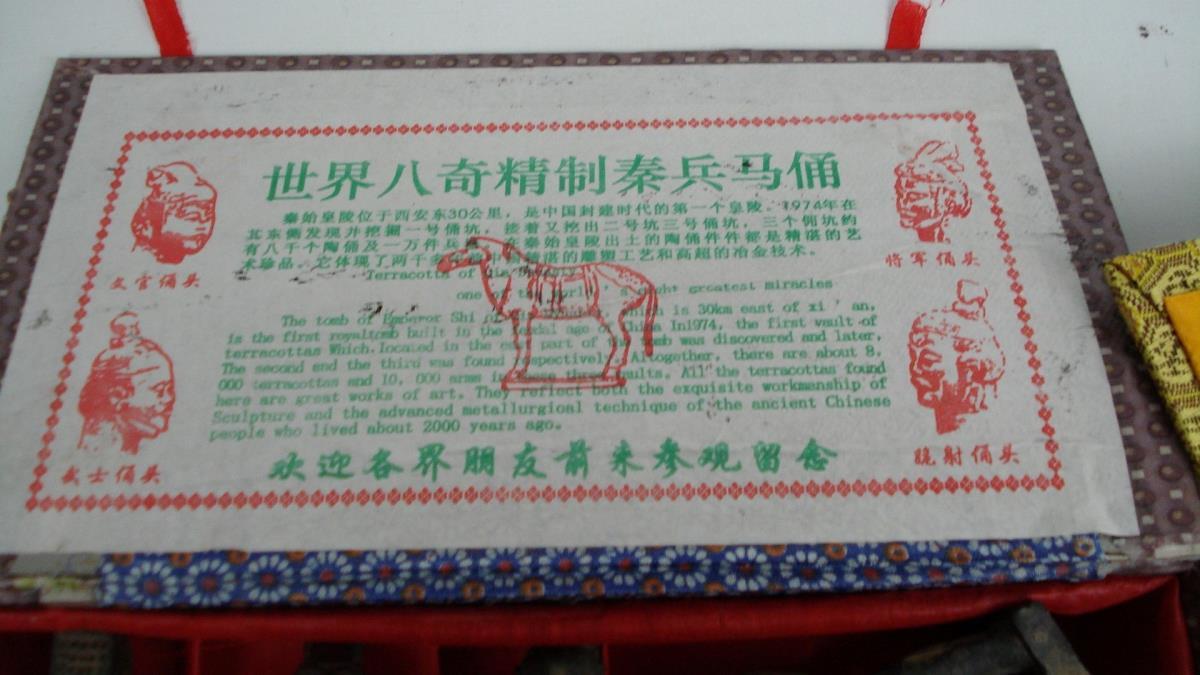 世界八奇精制秦兵马俑
秦始皇陵位于西安东30公里，是中国封建时代的第一个皇陵。1974年在
其东侧发现并挖掘一号俑坑，接着又挖出二号坑三号俑坑，三个俑坑约
有八千个陶俑及一万件兵 在秦始皇陵出土的陶俑件件都是精湛的艺
术珍品。它体现了两千多年 中 精湛的雕塑工艺和高超的冶金技术。
Terracotts of Dynasty
one of the world s eight greatest miracles
The tomb of Emperor Shi of which is 30km east of xi'an,
is the first royaltomb built in the feudal age of China In1974, the first vault of
terracottas Which.located in the east part of the tomb was discovered and later,
The second end the third was found respectively. Altogether, there are about 8,
000 terracottas and 10, 000 arms in these three vaults. All the terracottas found
here are great works of art. They reflect both the exquisite workmanship of
Sculpture and the advanced metallurgical technique of the ancient Chinese
people who lived about 2000 years ago.
欢迎各界朋友前来参观留念
文官俑头
将军俑头
武士俑头
跪射俑头